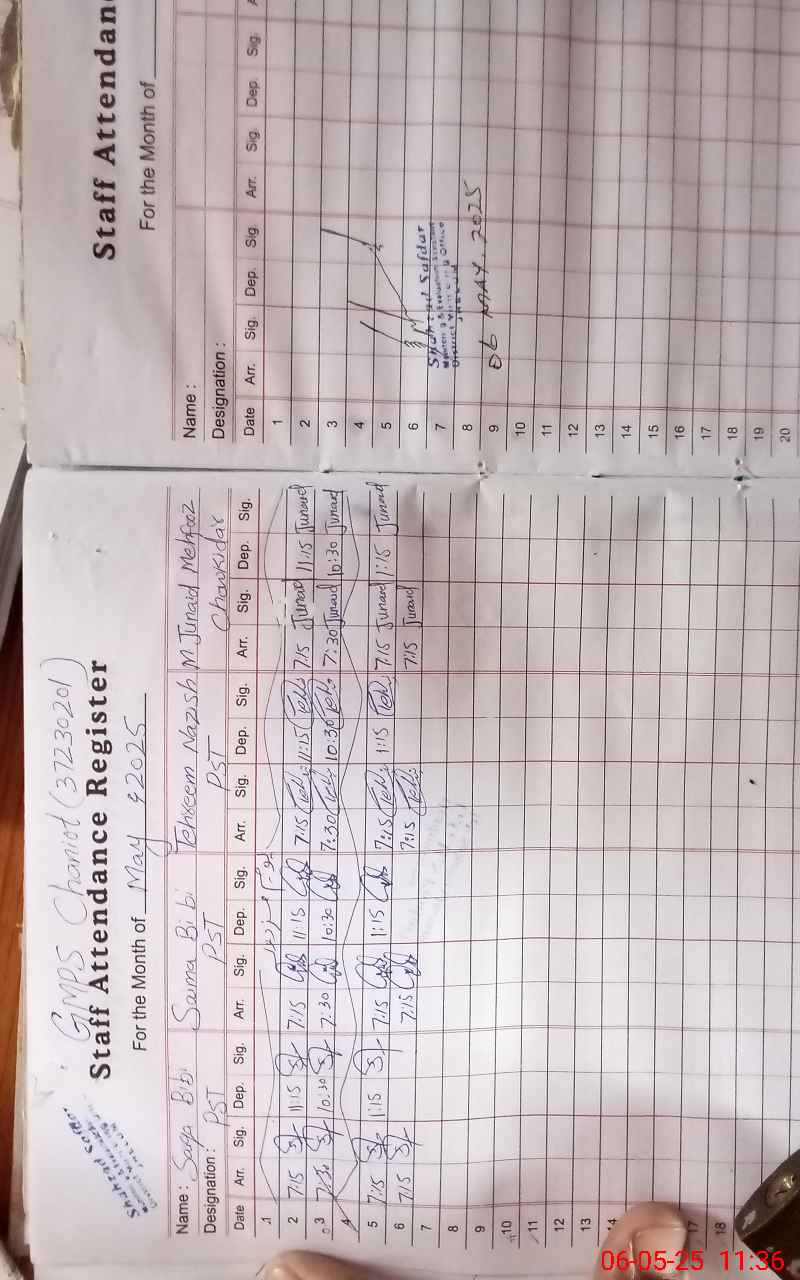 GMPS Chaniot (37230201)
Staff Attendance Register
For the Month of May 2025
Name : Saiqa Bibi Saima Bibi Tehseem Nazish M Junaid Mehfooz
Designation : PST PST PST Chowkidar
Date Arr. Sig. Dep. Sig. Arr. Sig. Dep. Sig. Arr. Sig. Dep. Sig. Arr. Sig. Dep. Sig.
1
2 7:15 11:15 7:15 11:15 7:15 11:15 7:15 Junaid 11:15 Junaid
3 7:30 10:30 7:30 10:30 7:30 10:30 7:30 Junaid 10:30 Junaid
4
5 7:15 1:15 7:15 1:15 7:15 1:15 7:15 Junaid 1:15 Junaid
6 7:15 7:15 7:15 7:15 Junaid
7
8
9
10
11
12
13
14
17
18
Staff Attendan
For the Month of
Name :
Designation :
Date Arr. Sig. Dep. Sig. Arr. Sig. Dep. Sig.
1
2
3
4
5
6
7
8
9
10
11
12
13
14
15
16
17
18
19
20
Shahzad Safdar
06 MAY. 2025
06-05-25 11:36